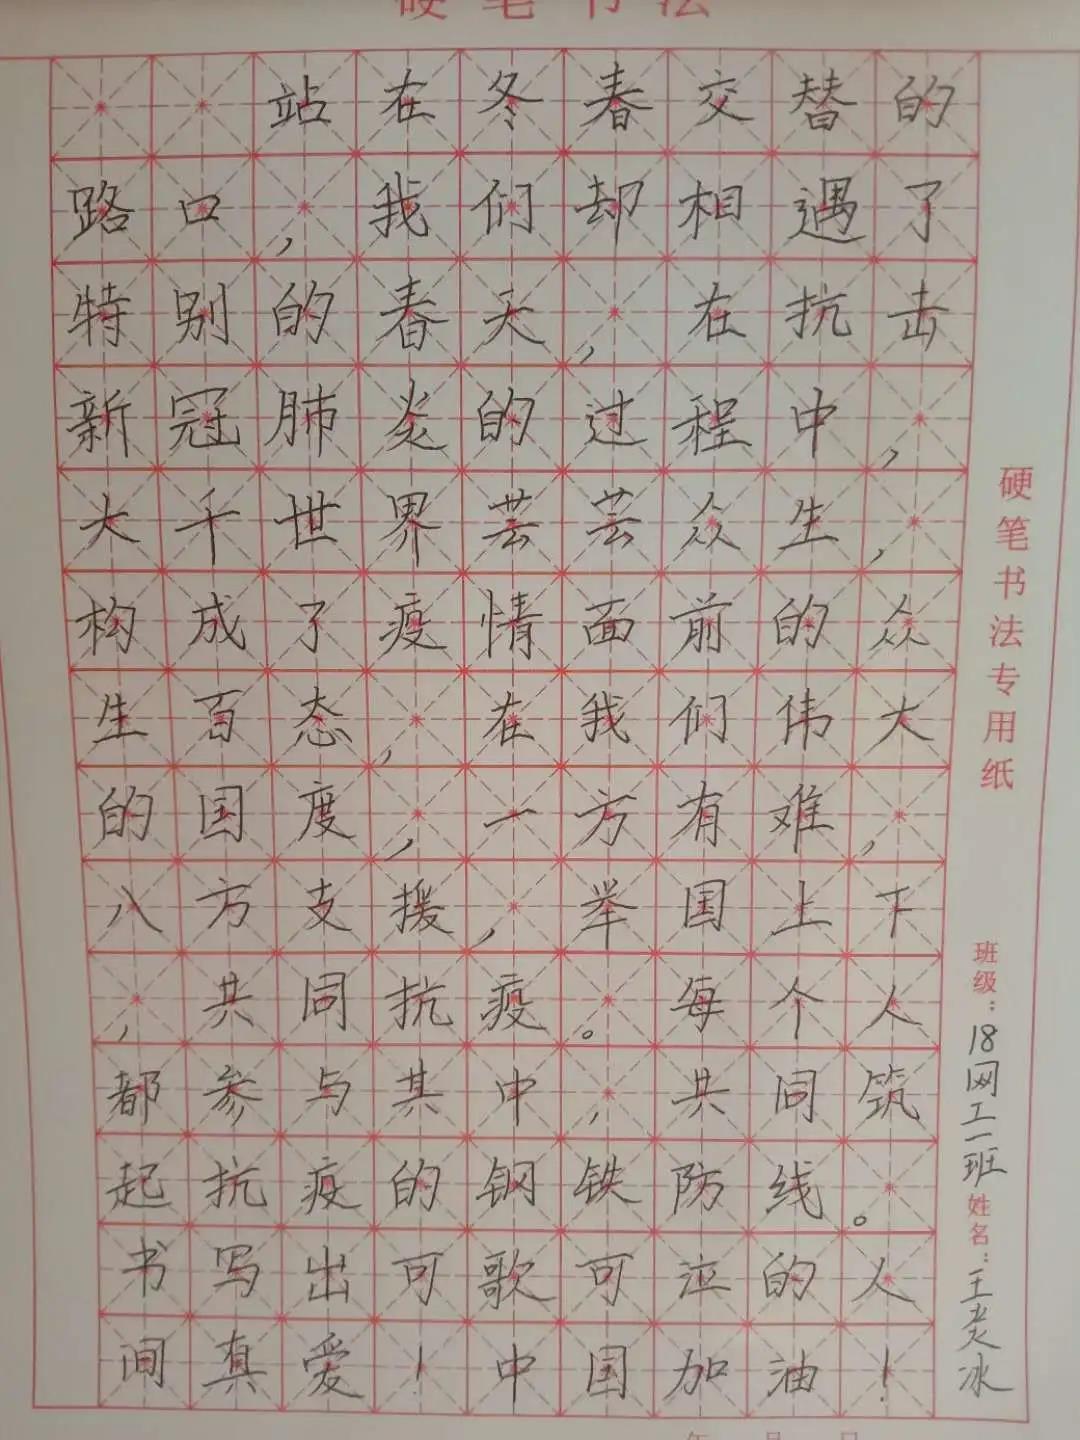 硬笔书法
站在冬春交替的
路口，我们却相遇了
特别的春天，在抗击
新冠肺炎的过程中，
大千世界芸芸众生，
构成了疫情面前的众
生百态，在我们伟大
的国度，一方有难，
八方支援，举国上下
，共同抗疫。每个人
都参与其中，共同筑
起抗疫的钢铁防线。
书写出可歌可泣的人
间真爱！中国加油！
硬笔书法专用纸
班级：18网工一班 姓名：王冰
年 月 日